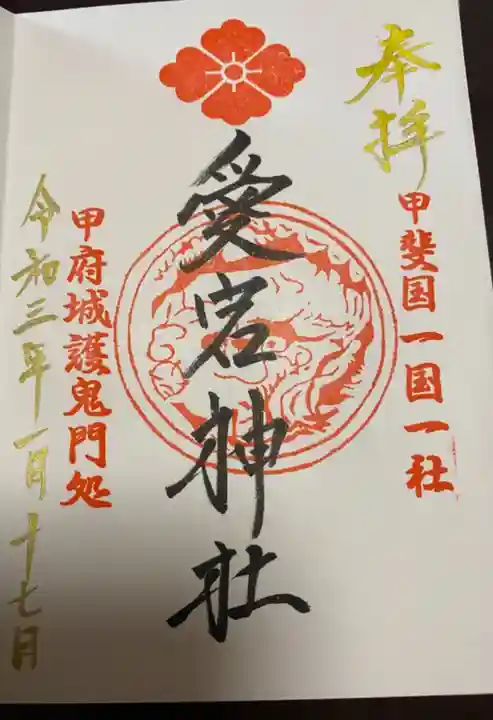 奉拝
甲斐国一国一社
愛宕神社
甲府城護鬼門処
令和三年一月十七日